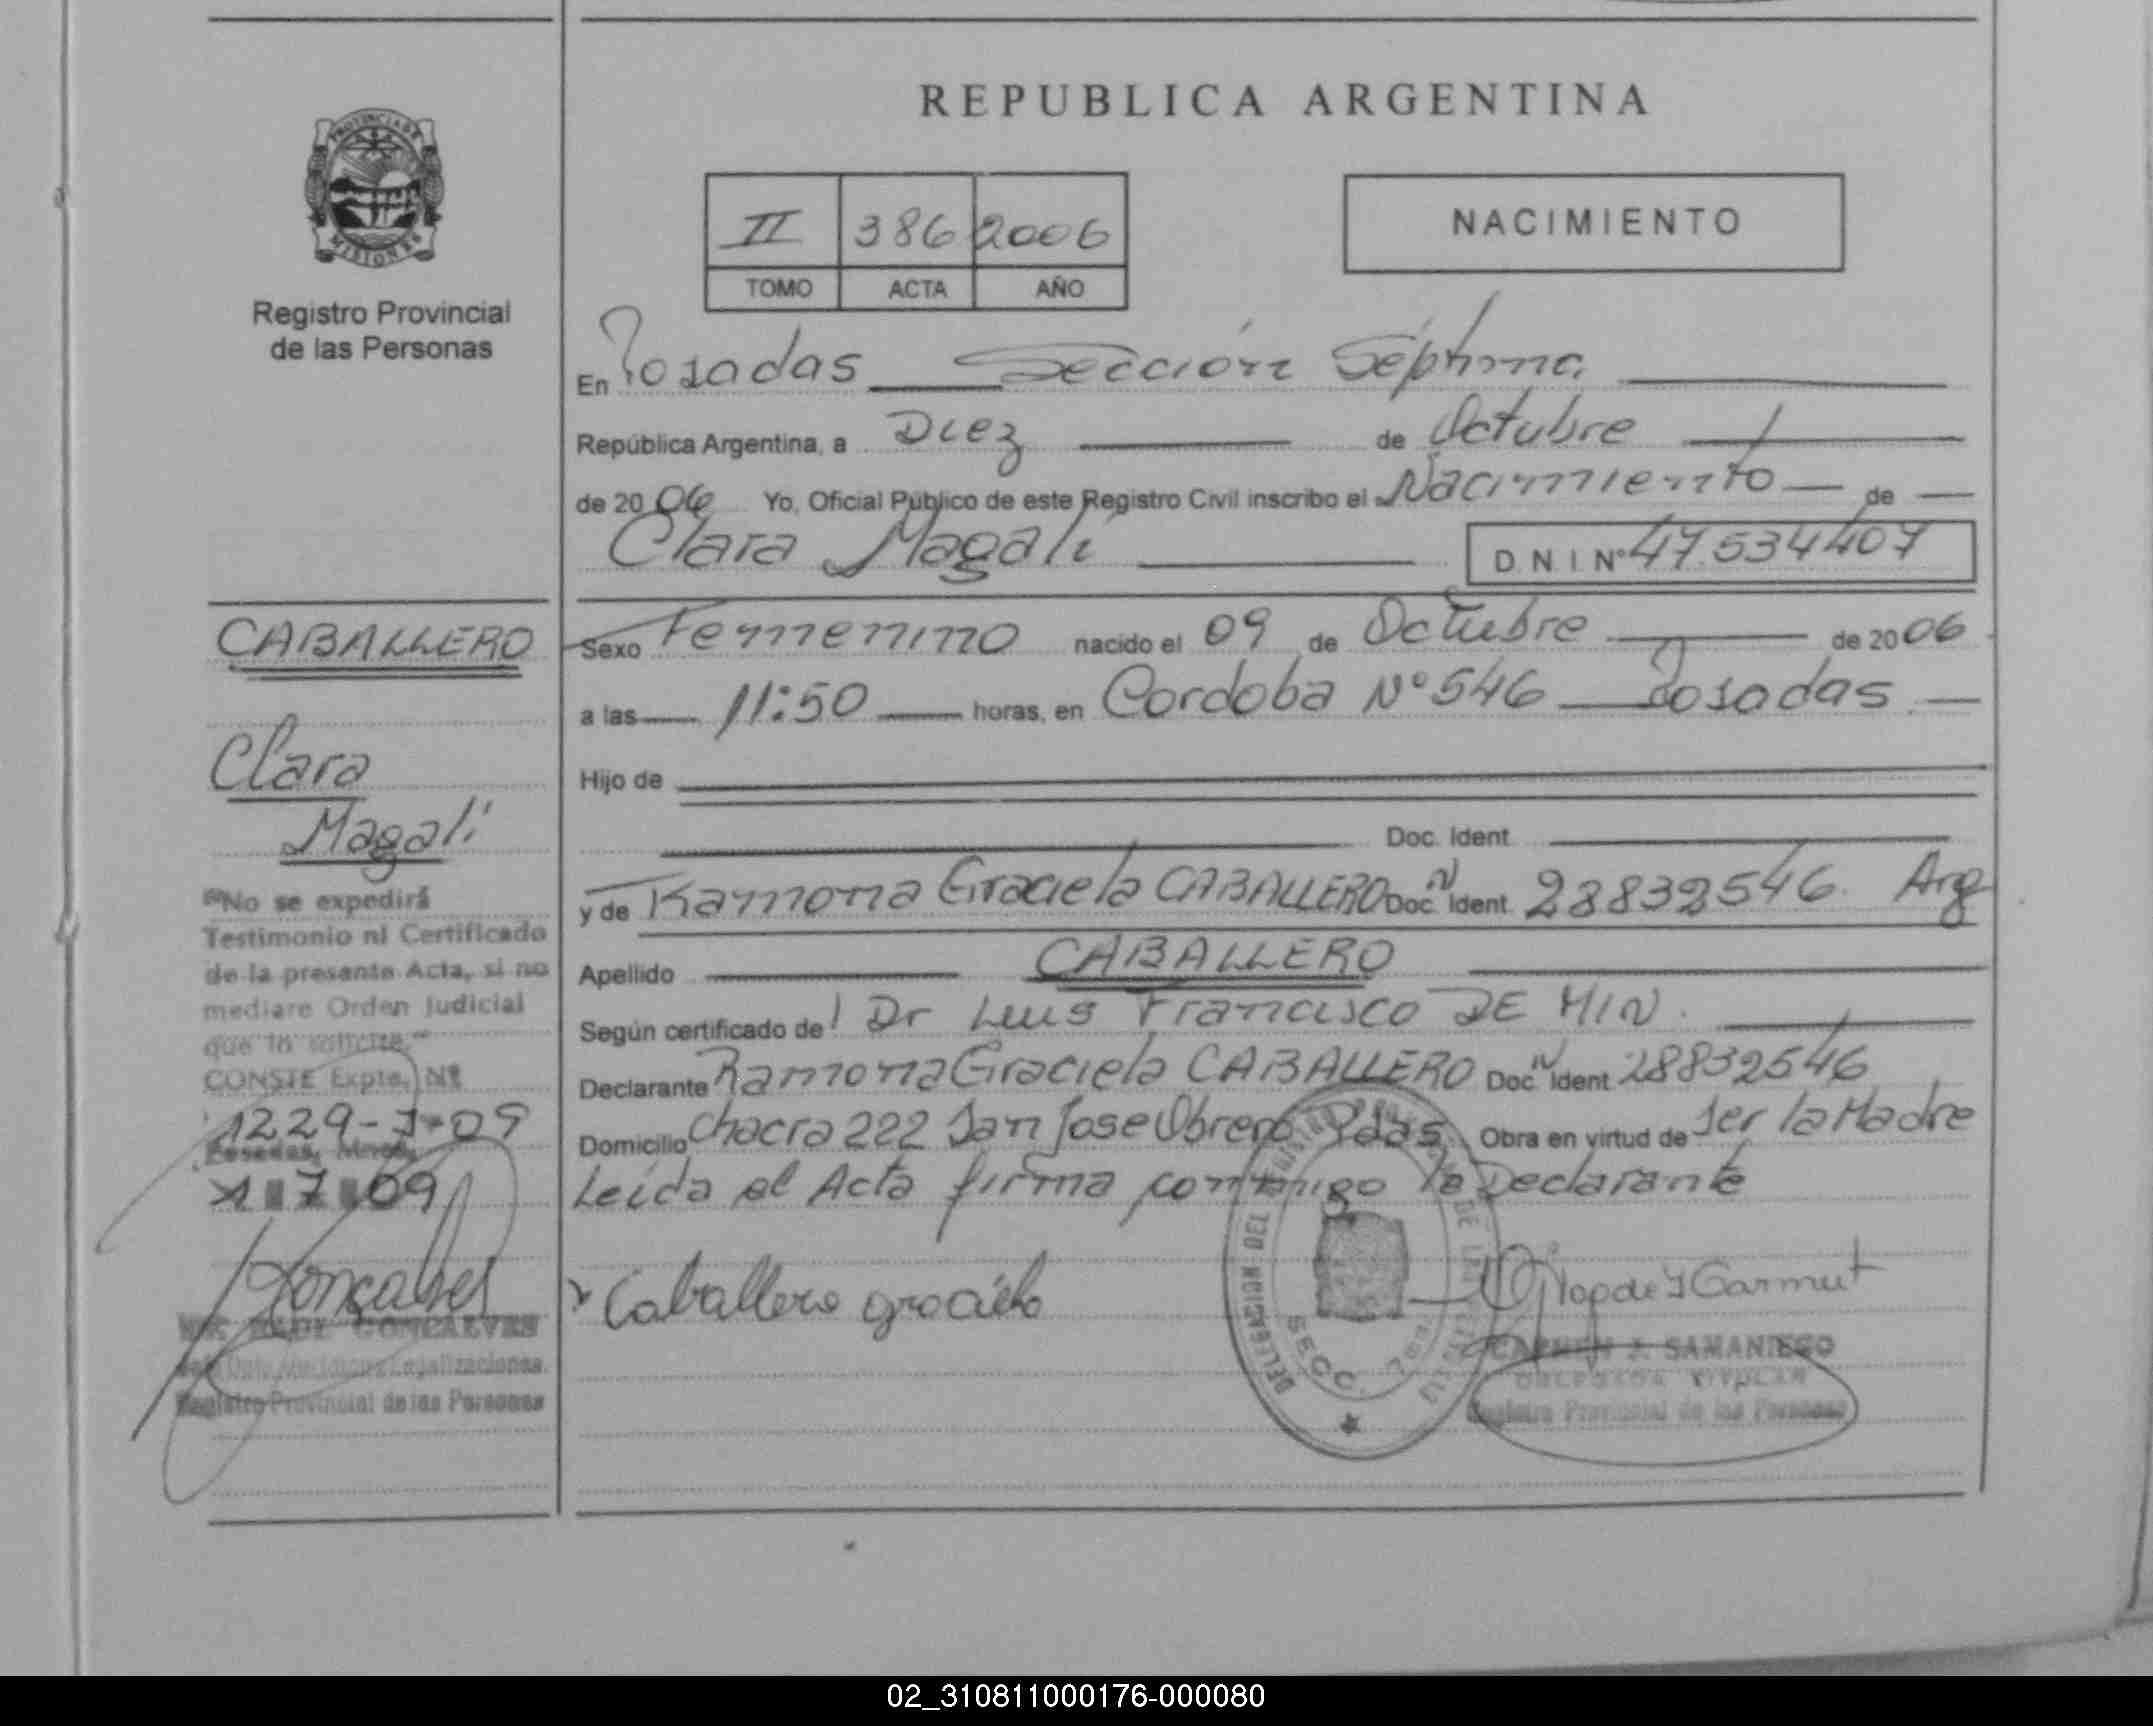 REPUBLICA ARGENTINA
PROVINCIA DE
MISIONES
Registro Provincial
de las Personas
II 386 2006
TOMO ACTA AÑO
NACIMIENTO
En Posadas Sección Séptima
República Argentina, a Diez de Octubre
de 20 06 Yo, Oficial Público de este Registro Civil inscribo el Nacimiento de
Clara Magali D.N.I Nº 47.534407
CABALLERO
Clara
Magali
"No se expedirá
Testimonio ni Certificado
de la presente Acta, si no
mediare Orden Judicial
que lo solicite."
CONSTE Expte. Nº
1229-J-09
Posadas, Mnes,
7 09
GONCALVES
Registro Provincial de las Personas
Sexo Femenino nacido el 09 de Octubre de 20 06
a las 11:50 horas, en Cordoba Nº 546 Posadas
Hijo de
Doc. Ident.
y de Ramona Graciela CABALLERO Doc. N Ident. 28832546. Arg
Apellido CABALLERO
Según certificado de Dr Luis Francisco DE MIN.
Declarante Ramona Graciela CABALLERO Doc. N Ident 28832546
Domicilio Chacra 222 San Jose Obrero Pdas. Obra en virtud de ser la Madre
Leida el Acta firma conmigo la Declarante
Caballero graciela
DELEGACION DEL
SECC. 7ma
CARMEN J. SAMANIEGO
DELEGADA TITULAR
Registro Provincial de las Personas
02_310811000176-000080